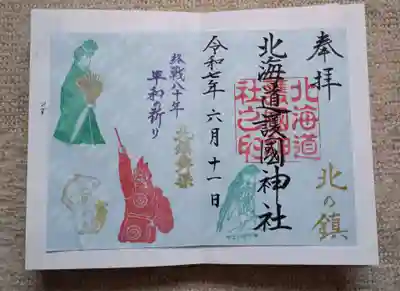 奉拝
北の鎮
北海道護國神社
北海道護國神社之印
令和七年 六月 十一日
終戦八十年
平和の祈り